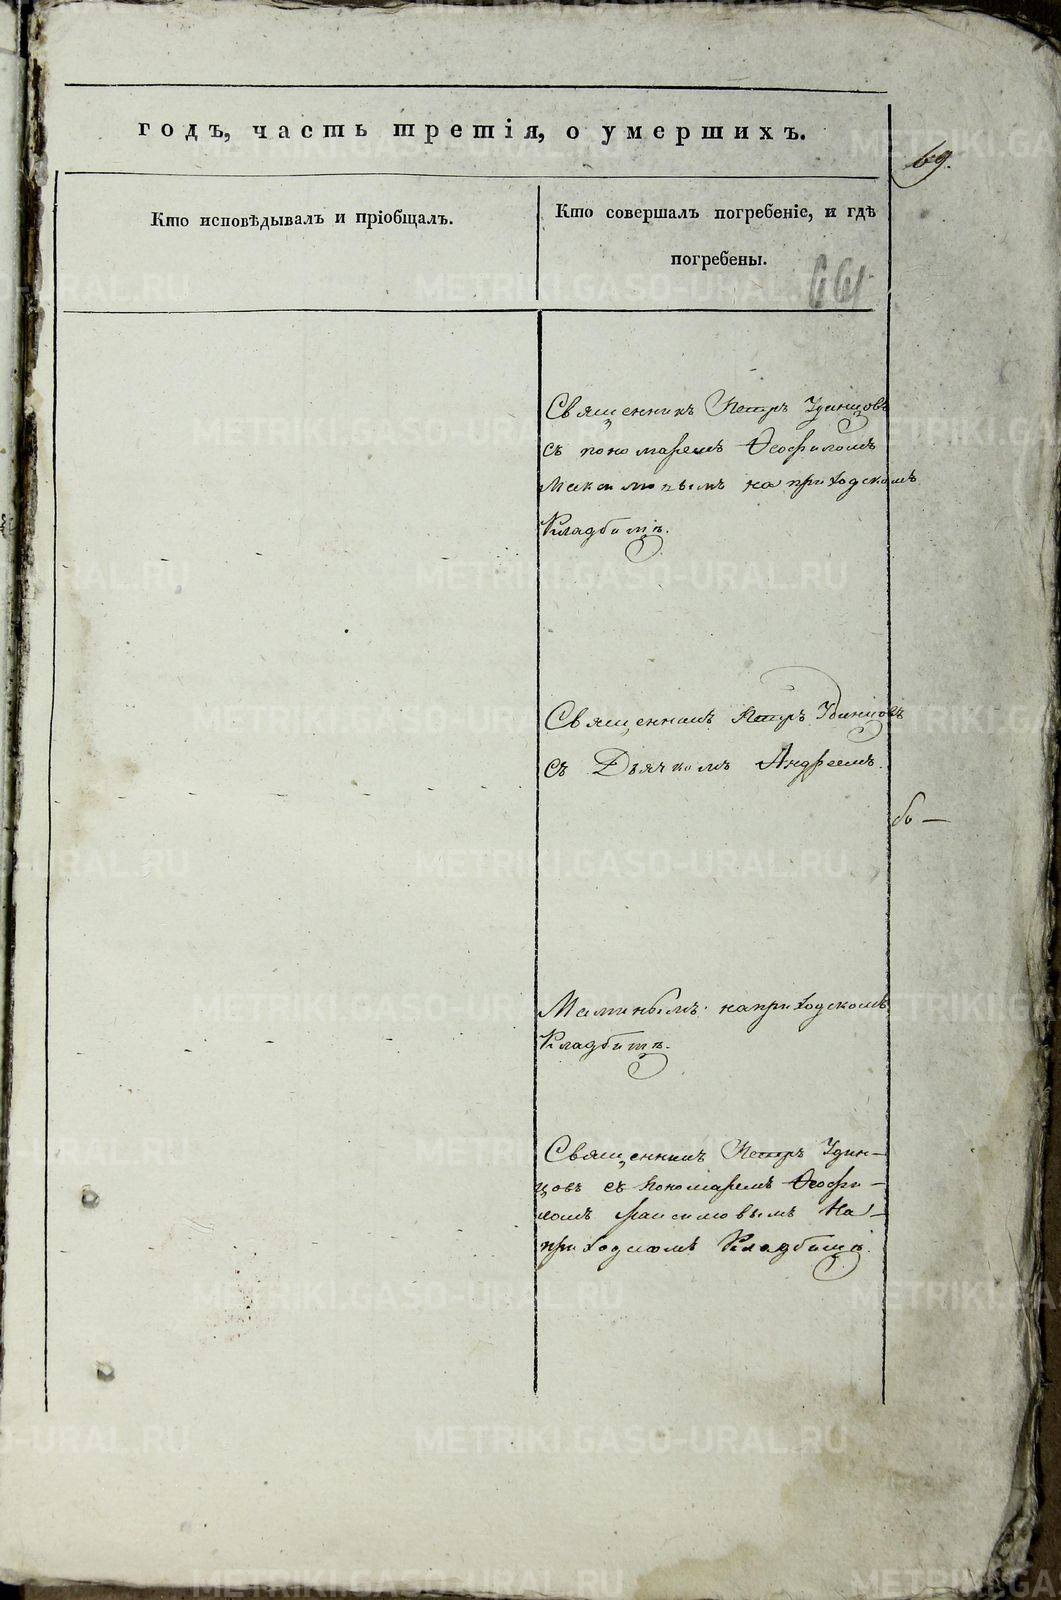 годъ, часть третія, о умершихъ.
69.
Кто исповѣдывалъ и пріобщалъ.
Кто совершалъ погребеніе, и гдѣ
погребены.
661
Священникъ Петръ Удинцовъ
съ пономаремъ Ѳеофиломъ
на приходскомъ
Кладбищѣ.
Священникъ Петръ Удинцовъ
съ Дьячкомъ Андреемъ
Маминымъ на приходскомъ
Кладбищѣ.
Священникъ Петръ Удин-
цовъ съ Пономаремъ Ѳеофи-
ломъ На-
приходскомъ Кладбищѣ.
METRIKI.GASO-URAL.RU